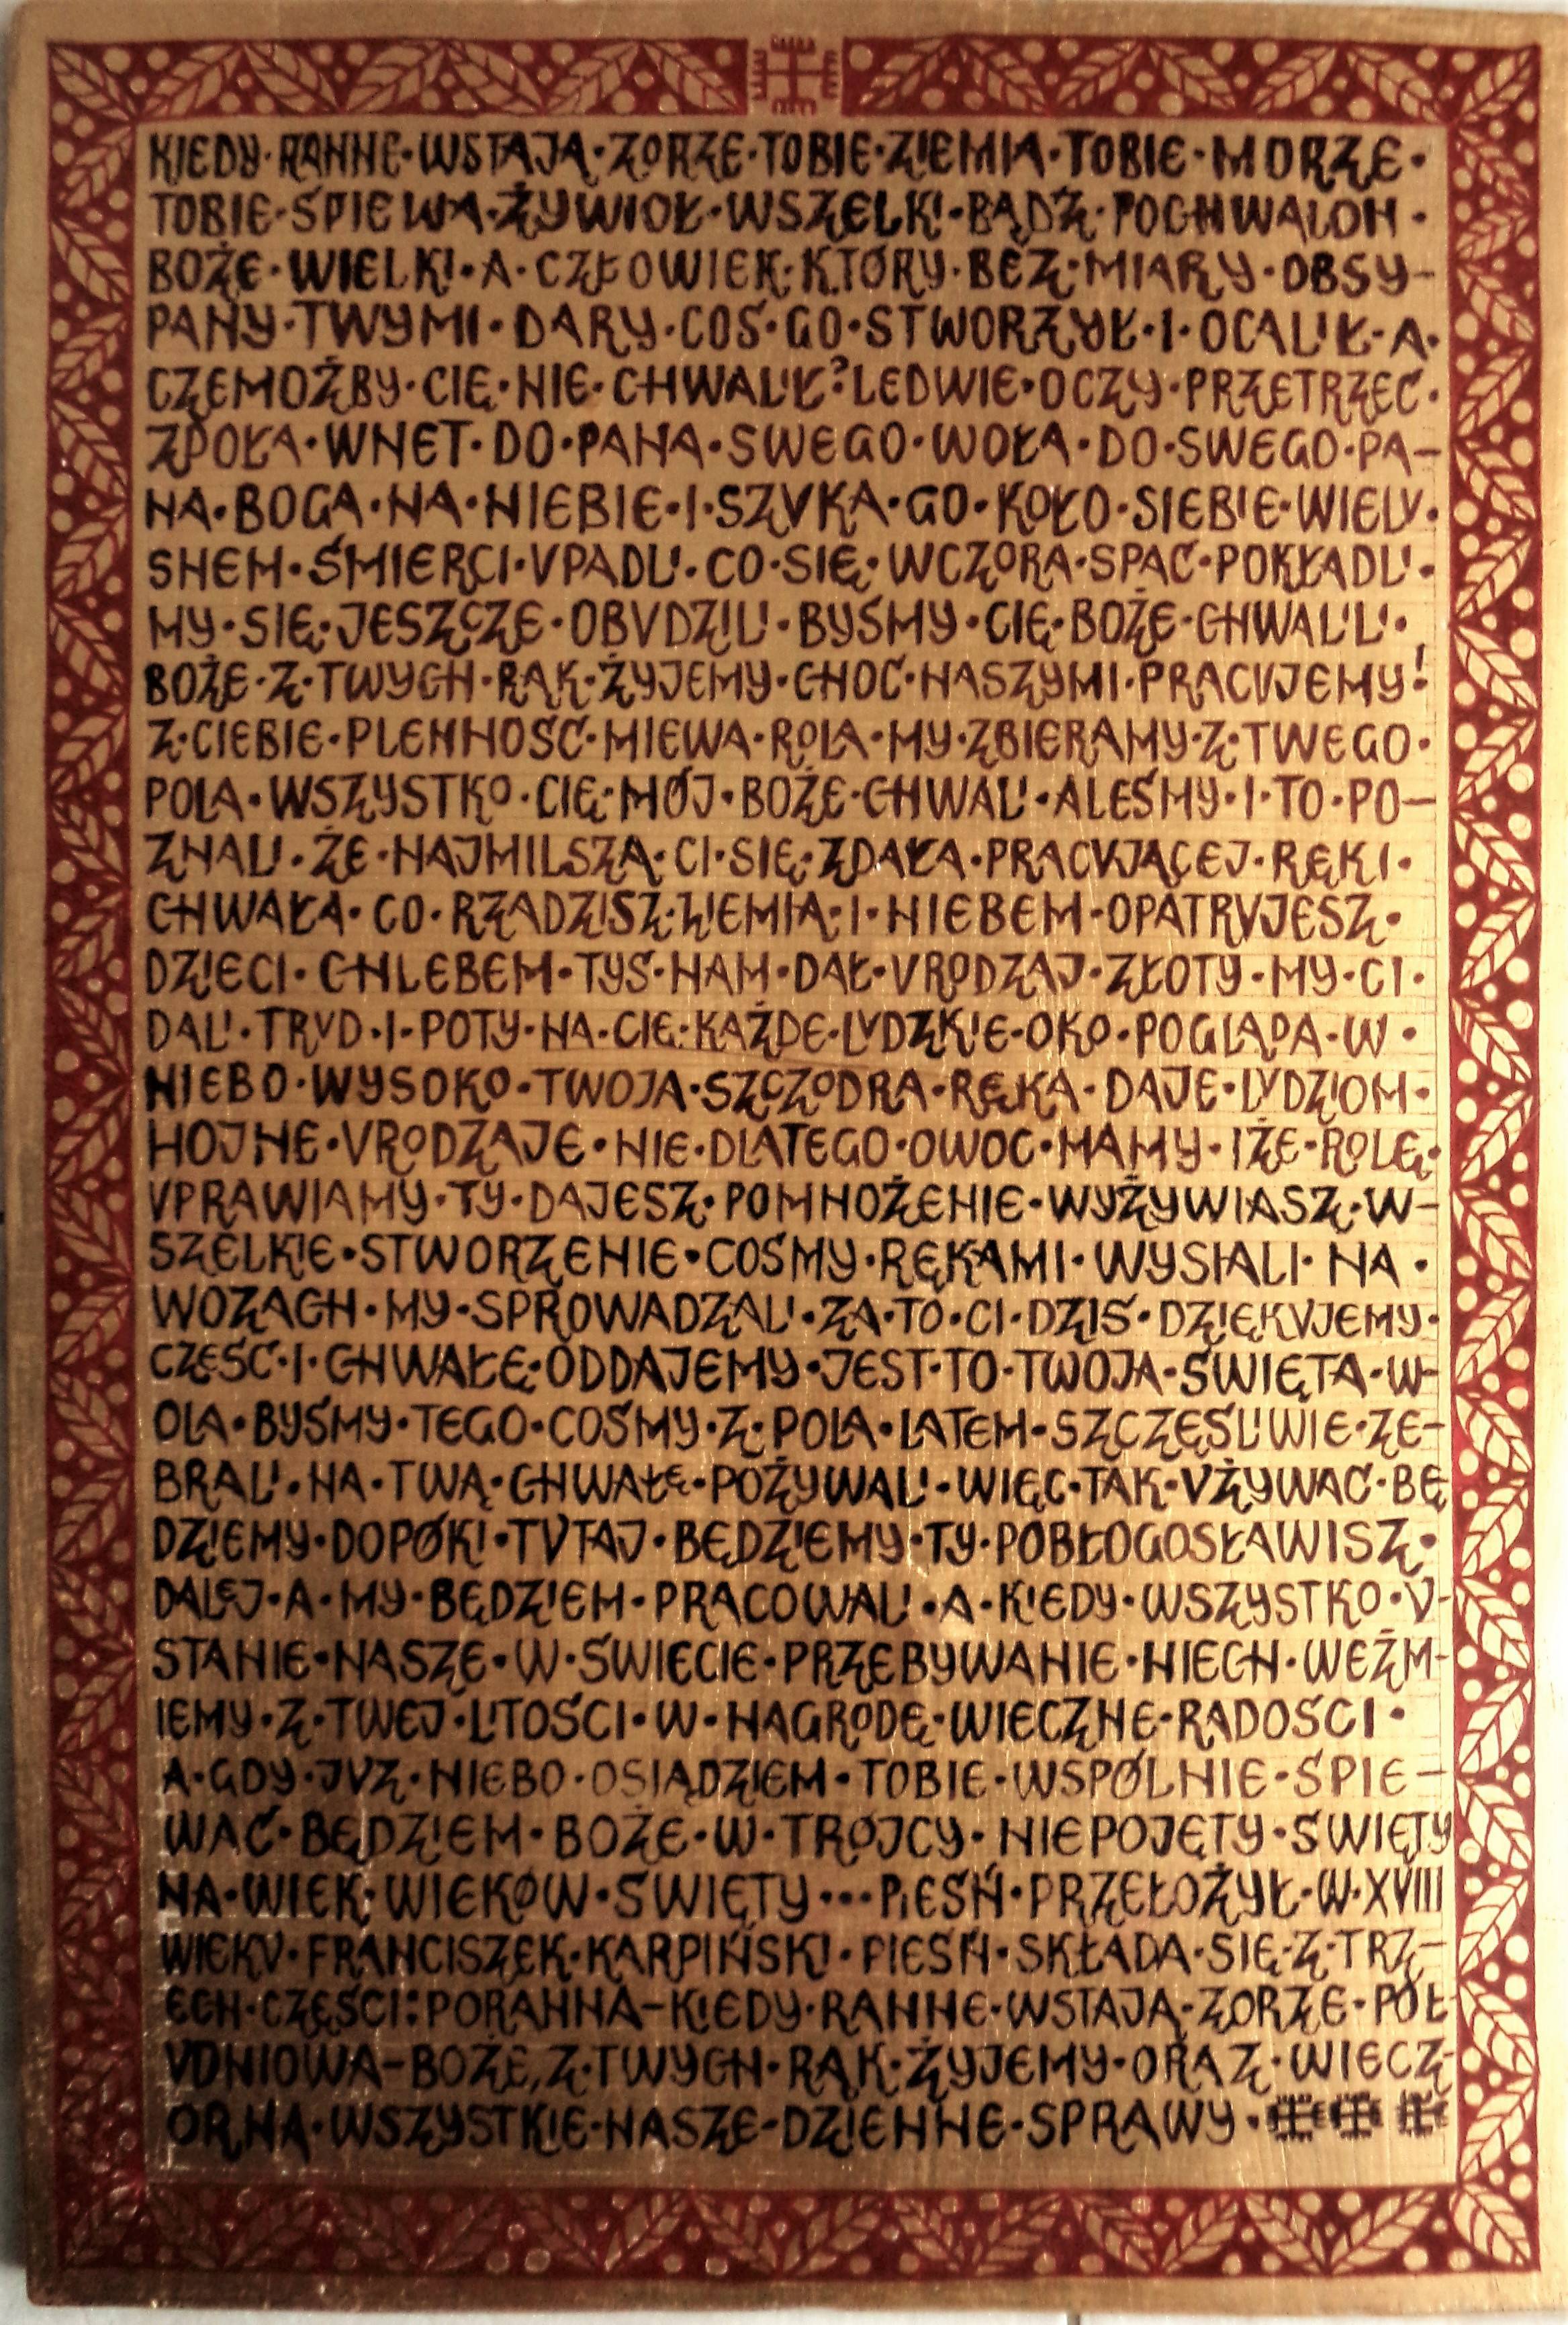 KIEDY·RANNE·WSTAJĄ·ZORZE·TOBIE·ZIEMIA·TOBIE·MORZE·
TOBIE·ŚPIEWA·ŻYWIOŁ·WSZELKI·BĄDŹ·POCHWALON·
BOŻE·WIELKI·A·CZŁOWIEK·KTÓRY·BEZ·MIARY·OBSY-
PANY·TWYMI·DARY·COŚ·GO·STWORZYŁ·I·OCALIŁ·A·
CZEMOŻBY·CIĘ·NIE·CHWALIŁ?LEDWIE·OCZY·PRZETRZEĆ·
ZDOŁA·WNET·DO·PANA·SWEGO·WOŁA·DO·SWEGO·PA-
NA·BOGA·NA·NIEBIE·I·SZVKA·GO·KOŁO·SIEBIE·WIELV·
SNEM·ŚMIERCI·VPADLI·CO·SIĘ·WCZORA·SPAĆ·POKŁADLI·
MY·SIĘ·JESZCZE·OBVDZILI·BYŚMY·CIĘ·BOŻE·CHWALILI·
BOŻE·Z·TWYCH·RĄK·ŻYJEMY·CHOĆ·NASZYMI·PRACVJEMY!
Z·CIEBIE·PLENNOŚĆ·MIEWA·ROLA·MY·ZBIERAMY·Z·TWEGO·
POLA·WSZYSTKO·CIĘ·MÓJ·BOŻE·CHWALI·ALEŚMY·I·TO·PO-
ZNALI·ŻE·NAJMILSZĄ·CI·SIĘ·ZDAŁA·PRACVJĄCEJ·RĘKI·
CHWAŁA·CO·RZĄDZISZ·ZIEMIĄ·I·NIEBEM·OPATRVJESZ·
DZIECI·CHLEBEM·TYŚ·NAM·DAŁ·VRODZAJ·ZŁOTY·MY·CI·
DALI·TRVD·I·POTY·NA·CIĘ·KAŻDE·LVDZKIE·OKO·POGLĄDA·W·
NIEBO·WYSOKO·TWOJA·SZCZODRA·RĘKA·DAJE·LVDZIOM·
HOJNE·VRODZAJE·NIE·DLATEGO·OWOC·MAMY·IŻE·ROLĘ·
VPRAWIAMY·TY·DAJESZ·POMNOŻENIE·WYŻYWIASZ·W-
SZELKIE·STWORZENIE·COŚMY·RĘKAMI·WYSIALI·NA·
WOZACH·MY·SPROWADZALI·ZA·TO·CI·DZIŚ·DZIĘKVJEMY·
CZEŚĆ·I·CHWAŁĘ·ODDAJEMY·JEST·TO·TWOJA·ŚWIĘTA·W-
OLA·BYŚMY·TEGO·COŚMY·Z·POLA·LATEM·SZCZĘŚLIWIE·ZE-
BRALI·NA·TWĄ·CHWAŁĘ·POŻYWALI·WIĘC·TAK·VŻYWAĆ·BĘ
DZIEMY·DOPÓKI·TVTAJ·BĘDZIEMY·TY·POBŁOGOSŁAWISZ·
DALEJ·A·MY·BĘDZIEM·PRACOWALI·A·KIEDY·WSZYSTKO·V-
STANIE·NASZE·W·ŚWIECIE·PRZEBYWANIE·NIECH·WEŹM-
IEMY·Z·TWEJ·LITOŚCI·W·NAGRODĘ·WIECZNE·RADOŚCI·
A·GDY·JVŻ·NIEBO·OSIĄDZIEM·TOBIE·WSPÓLNIE·ŚPIE-
WAĆ·BĘDZIEM·BOŻE·W·TRÓJCY·NIEPOJĘTY·ŚWIĘTY
NA·WIEK·WIEKÓW·ŚWIĘTY···PIEŚŃ·PRZEŁOŻYŁ·W·XVIII
WIEKV·FRANCISZEK·KARPIŃSKI·PIEŚŃ·SKŁADA·SIĘ·Z·TRZ-
ECH·CZĘŚCI:PORANNA-KIEDY·RANNE·WSTAJĄ·ZORZE·POŁ-
VDNIOWA-BOŻE,Z·TWYCH·RĄK·ŻYJEMY·ORAZ·WIECZ-
ORNA·WSZYSTKIE·NASZE·DZIENNE·SPRAWY·